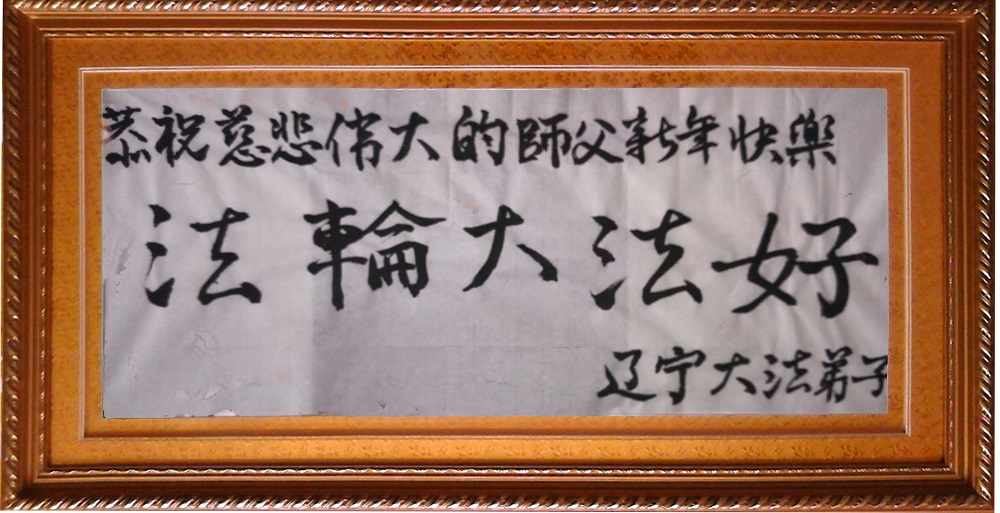 恭祝慈悲偉大的師父新年快樂
法輪大法好
辽宁大法弟子